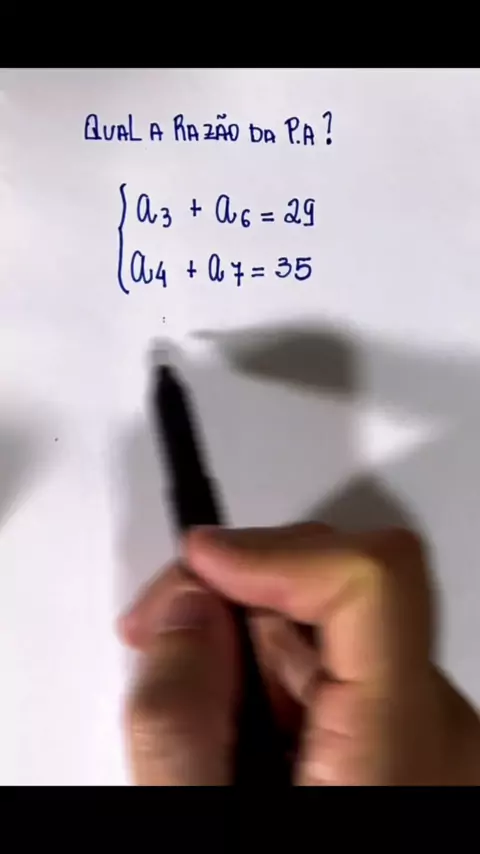 QUAL A RAZÃO DA P.A?
a3 + a6 = 29
a4 + a7 = 35